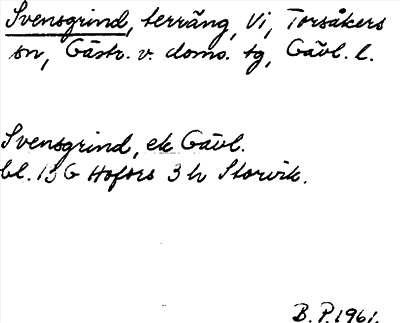 Svensgrind, terräng, Vi, Torsåkers
sn, Gästr. v. doms. tg, Gävl. l.
Svensgrind, ek Gävl.
bl. 13 G Hofors 3 h Storvik.
B. P. 1961.